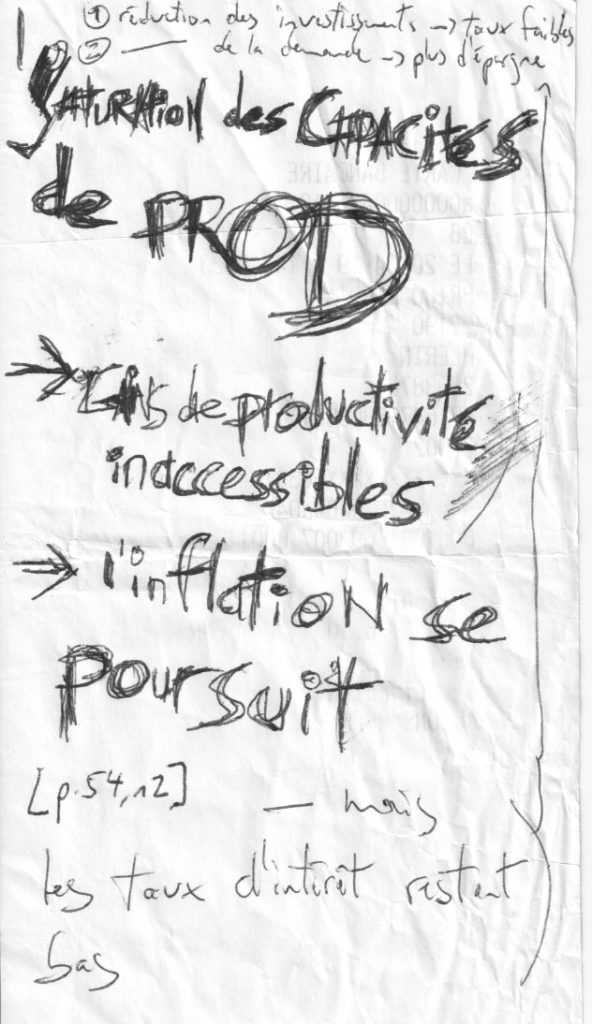 ① réduction des investissements → taux faibles
② —— de la demande → plus d'épargne
SATURATION des CAPACITES
de PROD
→ de productivité
inaccessibles
→ l'inflation se
poursuit
[p. 54, n2]
— mais
les taux d'intérêt restent
bas
CARTE BANCAIRE